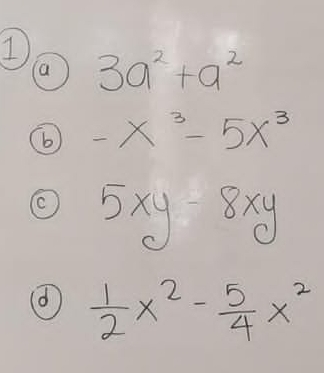 ① ⓐ 3a² + a²
ⓑ - x³ - 5x³
ⓒ 5xy - 8xy
ⓓ 1/2 x² - 5/4 x²